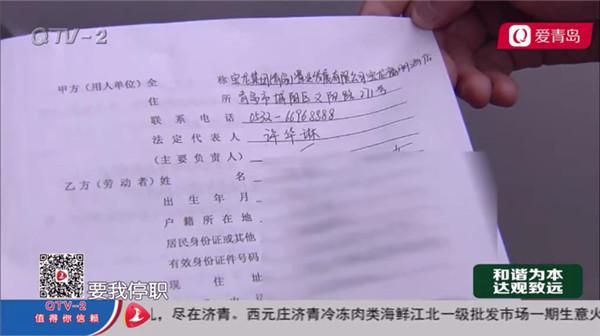 QTV-2
爱青岛
甲方（用人单位）全 称 宝龙集团(青岛)置业发展有限公司宝龙
住 所 青岛市城阳区文阳路271号
联系电话 0532-66968888
法定代表人 许华琳
（主要负责人）
乙方（劳动者）姓 名
出生年月
户籍所在地
居民身份证或其他
有效身份证件号码
现住址
要我停职
和谐为本
达观致远
QTV-2
值得你信赖
礼，尽在济青。西元庄济青冷冻肉类海鲜江北一级批发市场一期生意火